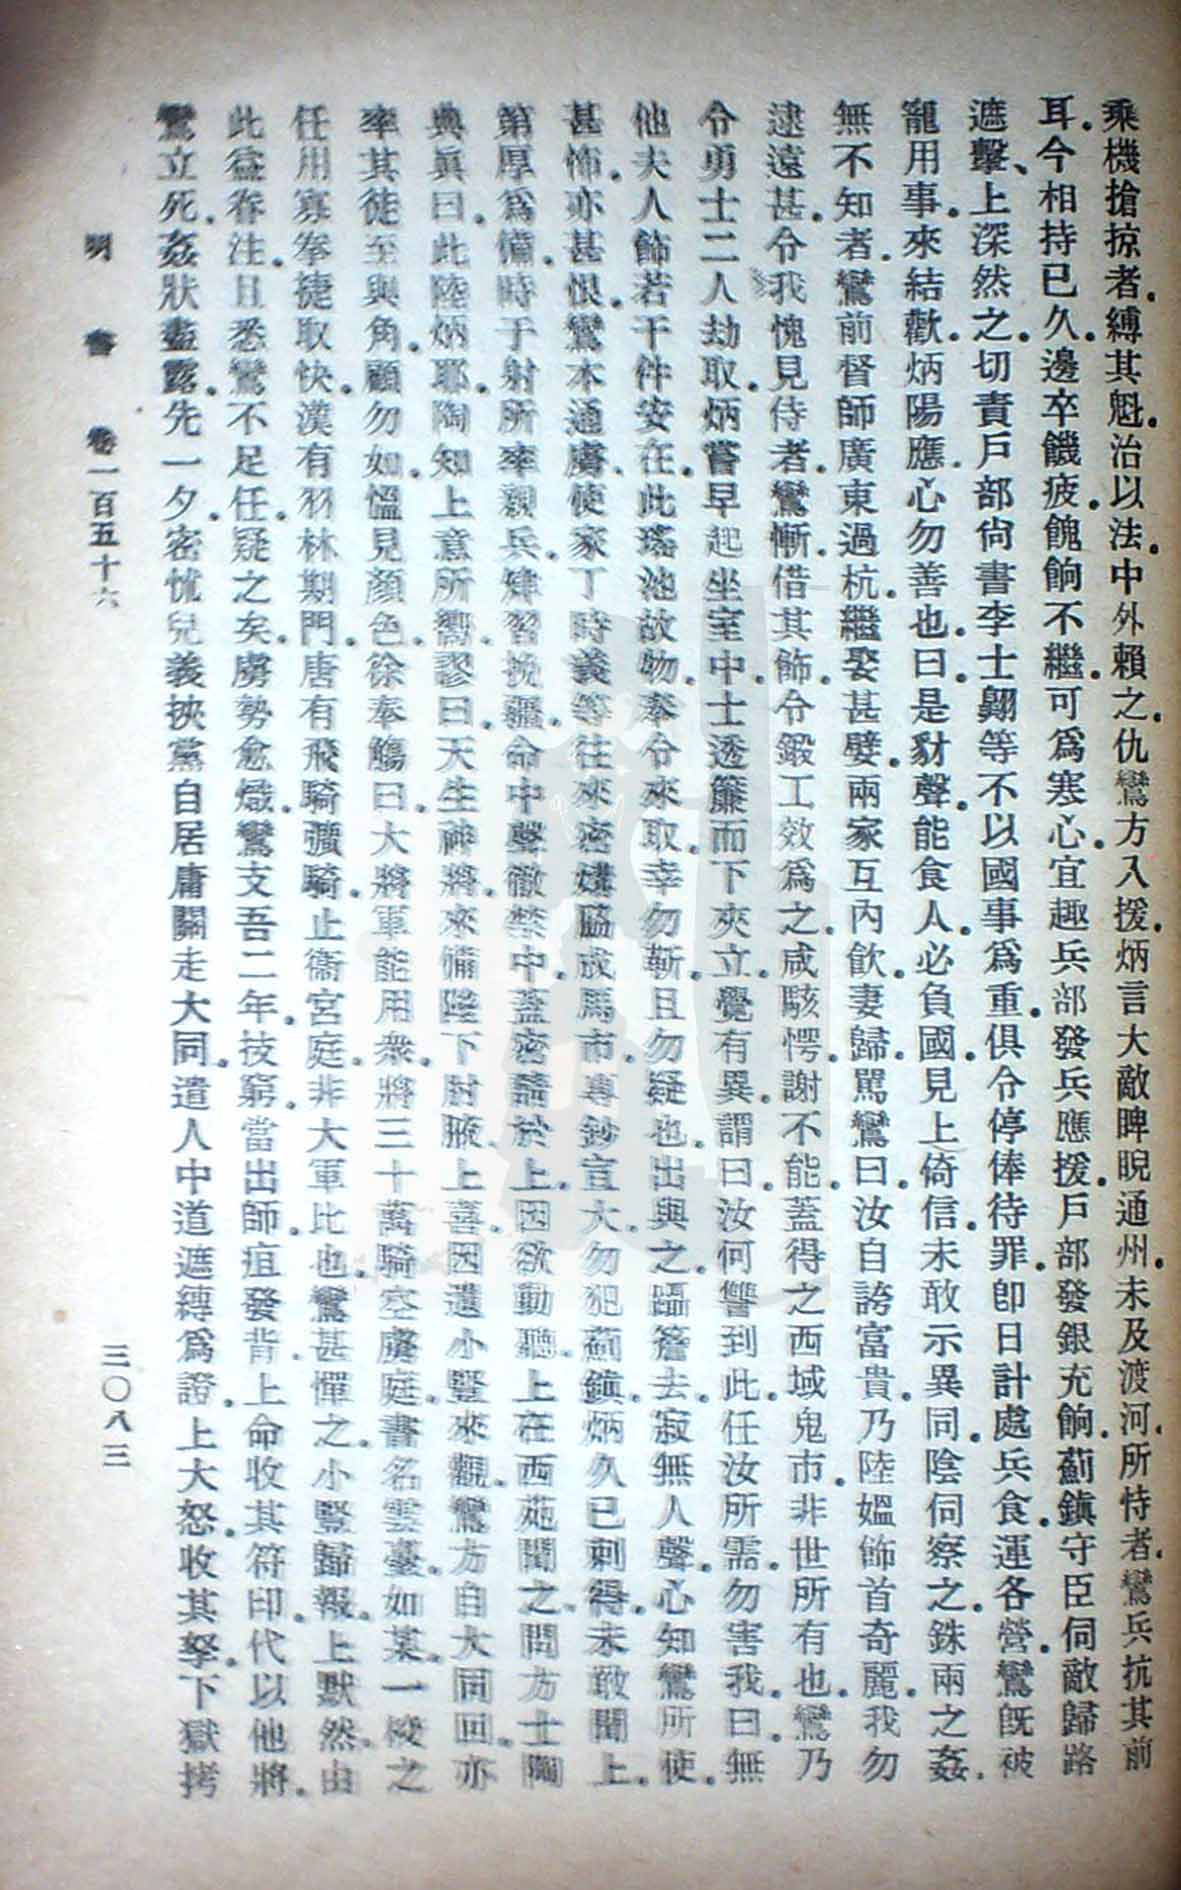 乘機搶掠者縛其魁治以法中外賴之仇鸞方入援炳言大敵睥睨通州未及渡河所恃者鸞兵抗其前
耳今相持已久邊卒饑疲餽餉不繼可爲寒心宜趣兵部發兵應援戶部發銀充餉薊鎮守臣伺敵歸路
遮擊上深然之切責戶部尙書李士翱等不以國事爲重俱令停俸待罪卽日計處兵食運各營鸞旣被
寵用事來結歡炳陽應心勿善也曰是豺聲能食人必負國見上倚信未敢示異同陰伺察之銖兩之姦
無不知者鸞前督師廣東過杭繼娶甚嬖兩家互內飮妻歸駡鸞曰汝自誇富貴乃陸媼飾首奇麗我勿
逮遠甚令我愧見侍者鸞慚借其飾令鍛工效爲之咸駭愕謝不能蓋得之西域鬼市非世所有也鸞乃
令勇士二人劫取炳嘗早起坐室中士透簾而下夾立覺有異謂曰汝何讐到此任汝所需勿害我曰無
他夫人飾若干件安在此瑤池故物奉令來取幸勿靳且勿疑也出與之躡簷去寂無人聲心知鸞所使
甚怖亦甚恨鸞本通虜使家丁時義等往來密媾脇成馬市專鈔宣大勿犯薊鎮炳久已刺得未敢聞上
第厚爲備時于射所率親兵肄習挽彊命中聲徹禁中蓋密蘄於上因欲動聽上在西苑聞之問方士陶
典眞曰此陸炳耶陶知上意所嚮謬曰天生神將來備陛下肘腋上喜因遣小豎來觀鸞方自大同回亦
率其徒至與角顧勿如慍見顏色徐奉觴曰大將軍能用衆將三十萬騎空虜庭書名雲臺如某一校之
任用寡奉捷取快漢有羽林期門唐有飛騎彍騎止衞宮庭非大軍比也鸞甚憚之小豎歸報上默然由
此益眷注且悉鸞不足任疑之矣虜勢愈熾鸞支吾二年技窮當出師疽發背上命收其符印代以他將
鸞立死姦狀盡露先一夕密怵兒義挾黨自居庸關走大同遣人中道遮縛爲證上大怒收其孥下獄拷
明書 卷一百五十六 三〇八三